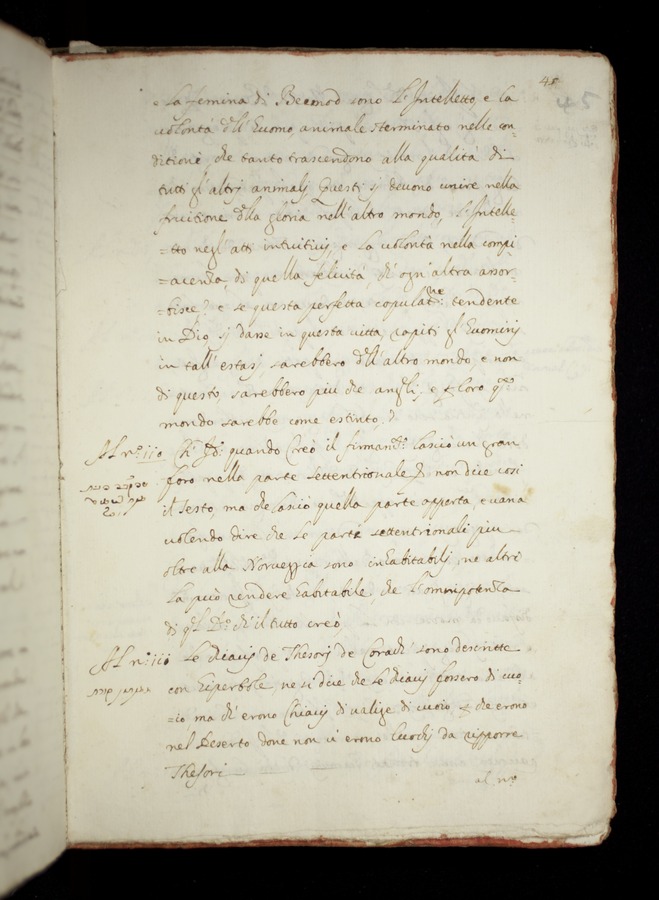 45
e la femina di Beemod sono l'Intelletto, e la
volontà dell'Huomo animale sterminato nelle con-
ditioni, che tanto trascendono alla qualità di
tutti gl'altri animalj. Questi sj devono unire nella
fruitione della gloria nell'altro mondo, l'Intelle-
=tto negl'atti intuitivj, e la volontà nella compi
=acenza di quella felicità, ch'ogn'altra assor-
=bisce, e se questa perfetta copulat.ne tendente
in Dio, sj dasse in questa vitta, rapiti gl'Huominj
in tall'estasj sarebbero dell'altro mondo, e non
di questo, sarebbero più che angelj, e loro
mondo sarebbe come estinto.
Al n.o 110 quando creò il firmam.to lasciò un gran
foro nella parte settentrionale non dice così
il Testo, ma che lasciò quella parte apperta, e vana
volendo dire che le parti settentrionali più
oltre alla Norveggia sono inhabitabilj, ne altri
la può rendere habitabile, che l'omnipotenza
di ch'il tutto creò.
Al n.o 110 le chiavj de Thesorj de Corach sono descritte
con hiperbole, ne si dice che le chiavj fossero di cuo-
=io ma ch'erono chiavj di valige di cuoio che erono
nel Deserto dove non vi erono luochj da ripporre
Thesori
al n.o